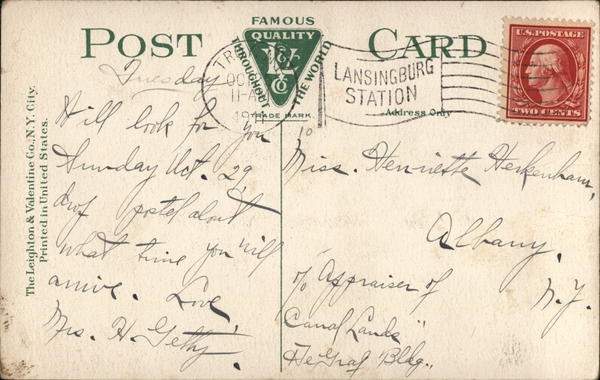 FAMOUS
QUALITY
THROUGHOUT THE WORLD
L & V Co
TRADE MARK.
POST CARD
U.S. POSTAGE
TWO CENTS
TR
OCT
11-A
191
LANSINGBURG
STATION
Address Only
The Leighton & Valentine Co., N.Y. City.
Printed in United States.
Tuesday
Will look for you
Sunday Oct. 29,
drop postal about
what time you will
arrive. Love
Mrs. H. Getty.
10
Miss. Henriette Herkenham,
Albany,
N.Y.
c/o Appraiser of
Canal Lands"
DeGraf Bldg.